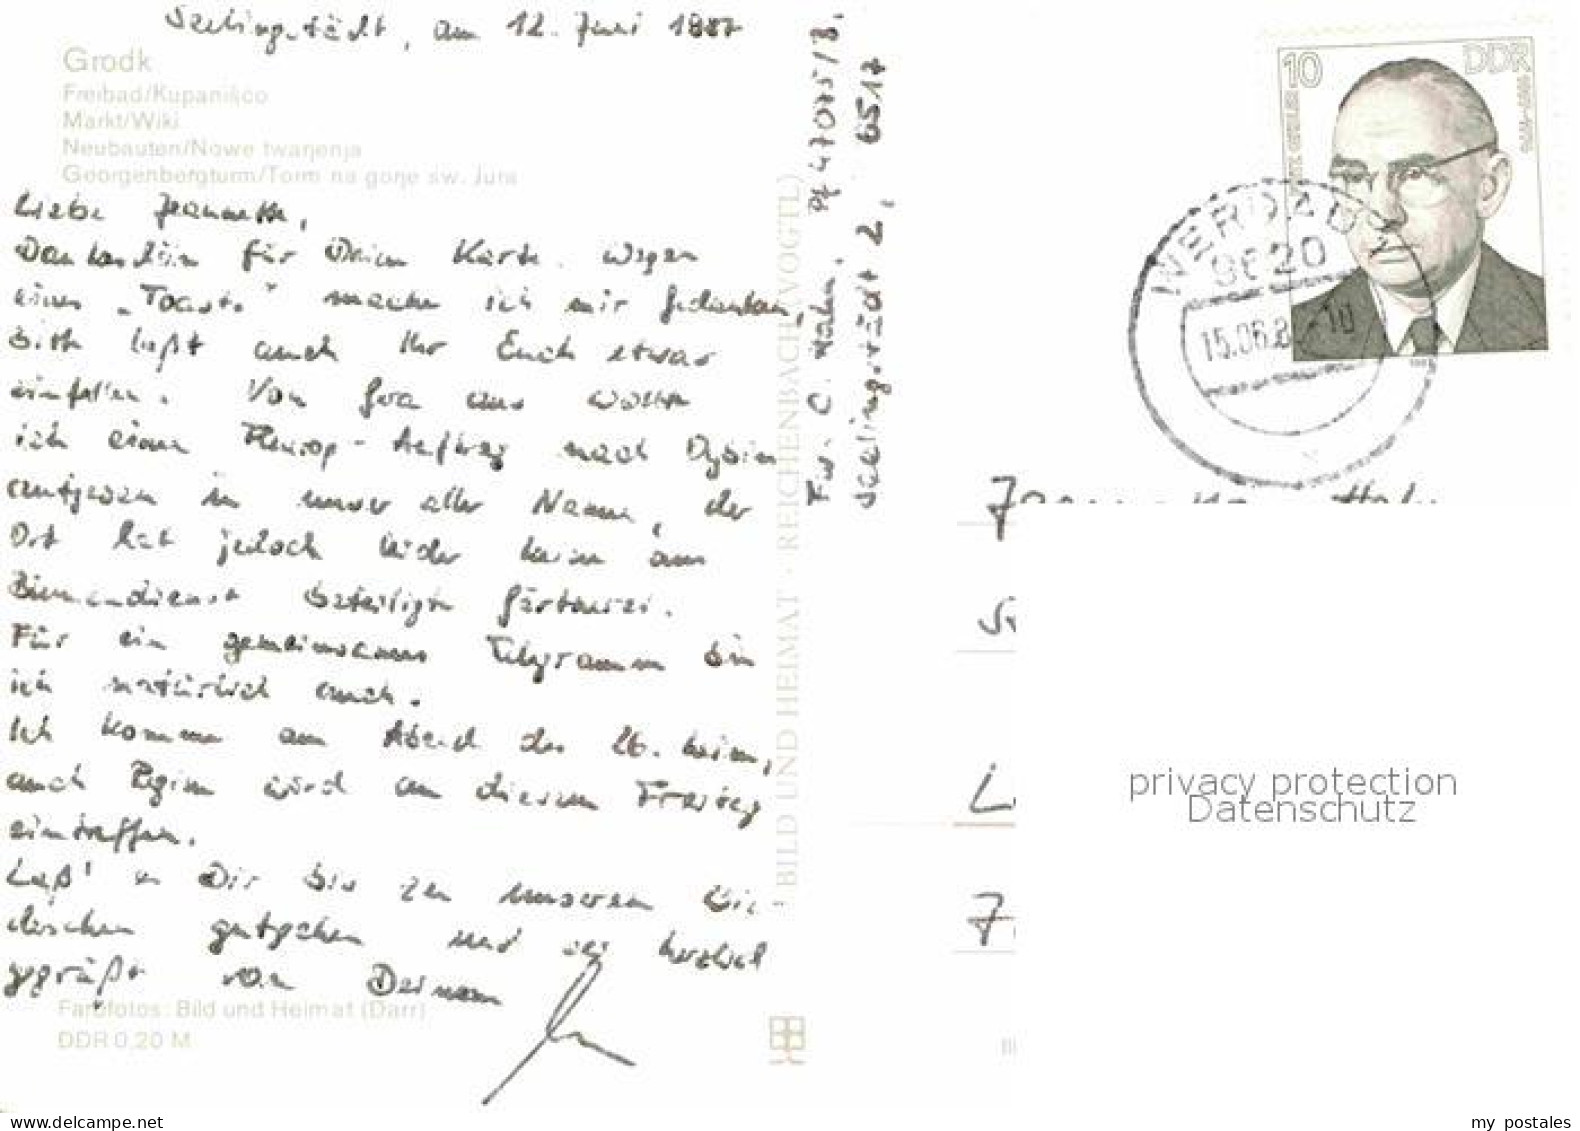 Seelingstädt, am 12. Juni 1987
Grodk
Freibad/Kupanišćo
Markt/Wiki
Neubauten/Nowe twarjenja
Georgenbergturm/Torm na gorje sw. Jura
Liebe Jeannette,
Dankeschön für Deine Karte. Wegen
eines „Toasts" mache ich mir Gedanken,
bitte laßt auch Ihr Euch etwas
einfallen. Von Gera aus wollte
ich einen Fleurop-Auftrag nach Oybin
aufgeben in unser aller Namen, der
Ort hat jedoch leider keine am
Blumendienst beteiligte Gärtnerei.
Für ein gemeinsames Telegramm bin
ich natürlich auch.
Ich komme am Abend des 26. heim,
auch Regina wird an diesem Freitag
eintreffen.
Laß' es Dir bis zu unserem Wie-
dersehen gutgehen und sei herzlich
gegrüßt von Deinem
Farbfotos: Bild und Heimat (Darr)
DDR 0,20 M
BILD UND HEIMAT · REICHENBACH (VOGTL)
Fw. C. Hahn, Pf 47075/B,
Seelingstädt 2, 6517
10 DDR
WERDAU
9620
15.06.8 -10
privacy protection
Datenschutz
www.delcampe.net
my postales